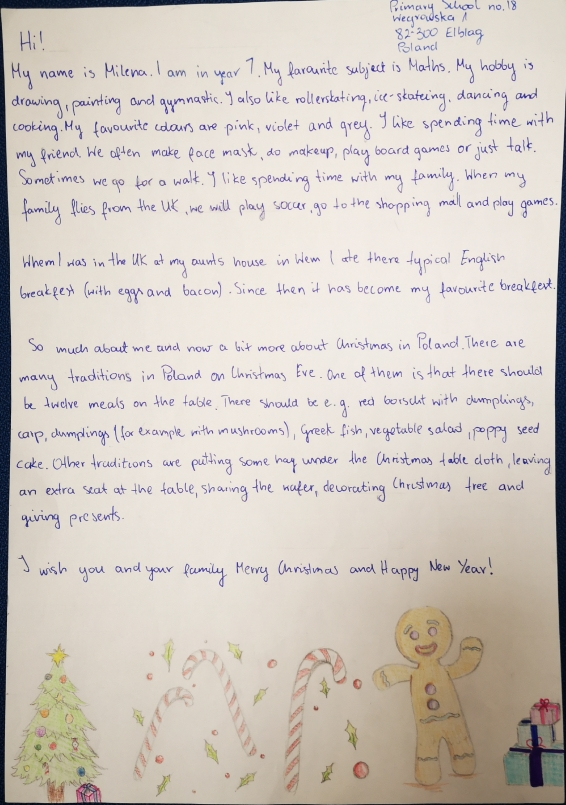 Primary School no.18
Węgrowska 1
82-300 Elbląg
Poland
Hi!
My name is Milena. I am in year 7. My favourite subject is Maths. My hobby is
drawing, painting and gymnastic. I also like rollerstating, ice-stateing, dancing and
cooking. My favourite colours are pink, violet and grey. I like spending time with
my friend. We often make face mask, do makeup, play board games or just talk.
Sometimes we go for a walk. I like spending time with my family. When my
family flies from the UK, we will play soccer, go to the shopping mall and play games.
When I was in the UK at my aunts house in Wem I ate there typical English
breakfest (with eggs and bacon). Since then it has become my favourite breakfest.
So much about me and now a bit more about Christmas in Poland. There are
many traditions in Poland on Christmas Eve. One of them is that there should
be twelve meals on the table. There should be e.g. red borscht with dumplings,
carp, dumplings (for example with mushrooms), Greek fish, vegetable salad, poppy seed
cake. Other traditions are putting some hay under the Christmas table cloth, leaving
an extra seat at the table, sharing the wafer, decorating Christmas tree and
giving presents.
I wish you and your family Merry Christmas and Happy New Year!